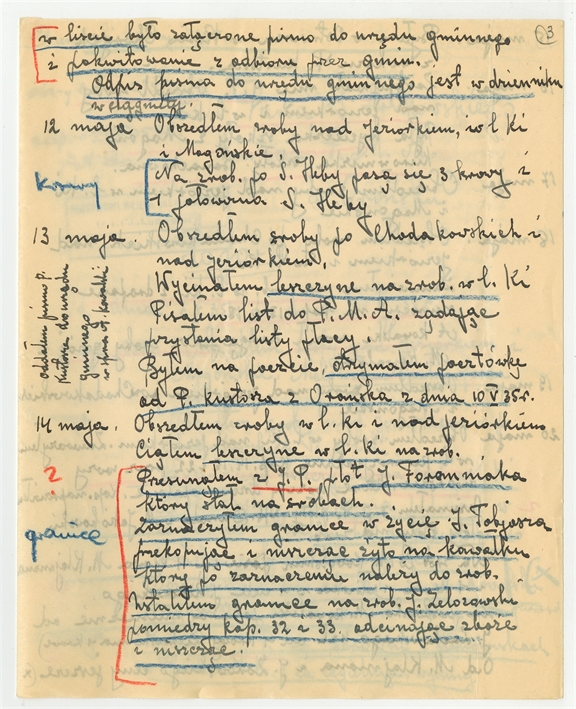 3
w liście było załączone pismo do urzędu gminnego
i pokwitowanie z odbioru przez gmin.
Odpis pisma do urzędu gminnego jest w dzienniku
wciągnięty.
12 maja Obszedłem zroby nad jeziorkiem, w l. Ki
i Magońskie.
krowy
Na zrob. po S. Heby pasą się 3 krowy i
1 jałowizna S. Heby
13 maja. Obszedłem zroby po Chodakowskich i
nad jeziórkiem.
Wycinałem leszczynę na zrob. w l. Ki
Pisałem list do P.M.A. żądając
przysłania listy płacy.
Oddałem pismo P.
Kustosza do urzędu
gminnego
w spraw. J. Kowalski
Byłem na poczcie, otrzymałem pocztówkę
od P. kustosza z Orońska z dnia 10 V 35 r.
14 maja. Obszedłem zroby w l. ki i nad jeziórkiem
Ciąłem leszczynę w l. Ki na zrob.
?
Przesunąłem z J.P. płot J. Foremniaka
który stał na srobach.
granice
Zaznaczyłem granicę w życie J. Tobjasza
przekopując i niszcząc żyto na kawałku
który po zaznaczeniu należy do zrob.
Ustaliłem granicę na zrob. J. Żelozowski
pomiędzy kop. 32 i 33. odcinając zboże
i niszcząc.